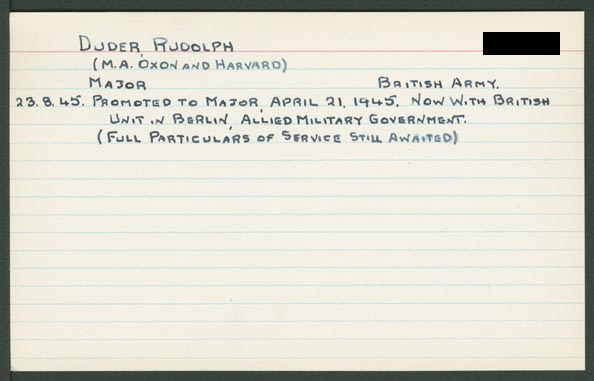 DUDER, RUDOLPH
(M.A. OXON AND HARVARD)
MAJOR BRITISH ARMY.
23.8.45. PROMOTED TO MAJOR, APRIL 21, 1945. NOW WITH BRITISH
UNIT IN BERLIN, ALLIED MILITARY GOVERNMENT.
(FULL PARTICULARS OF SERVICE STILL AWAITED)